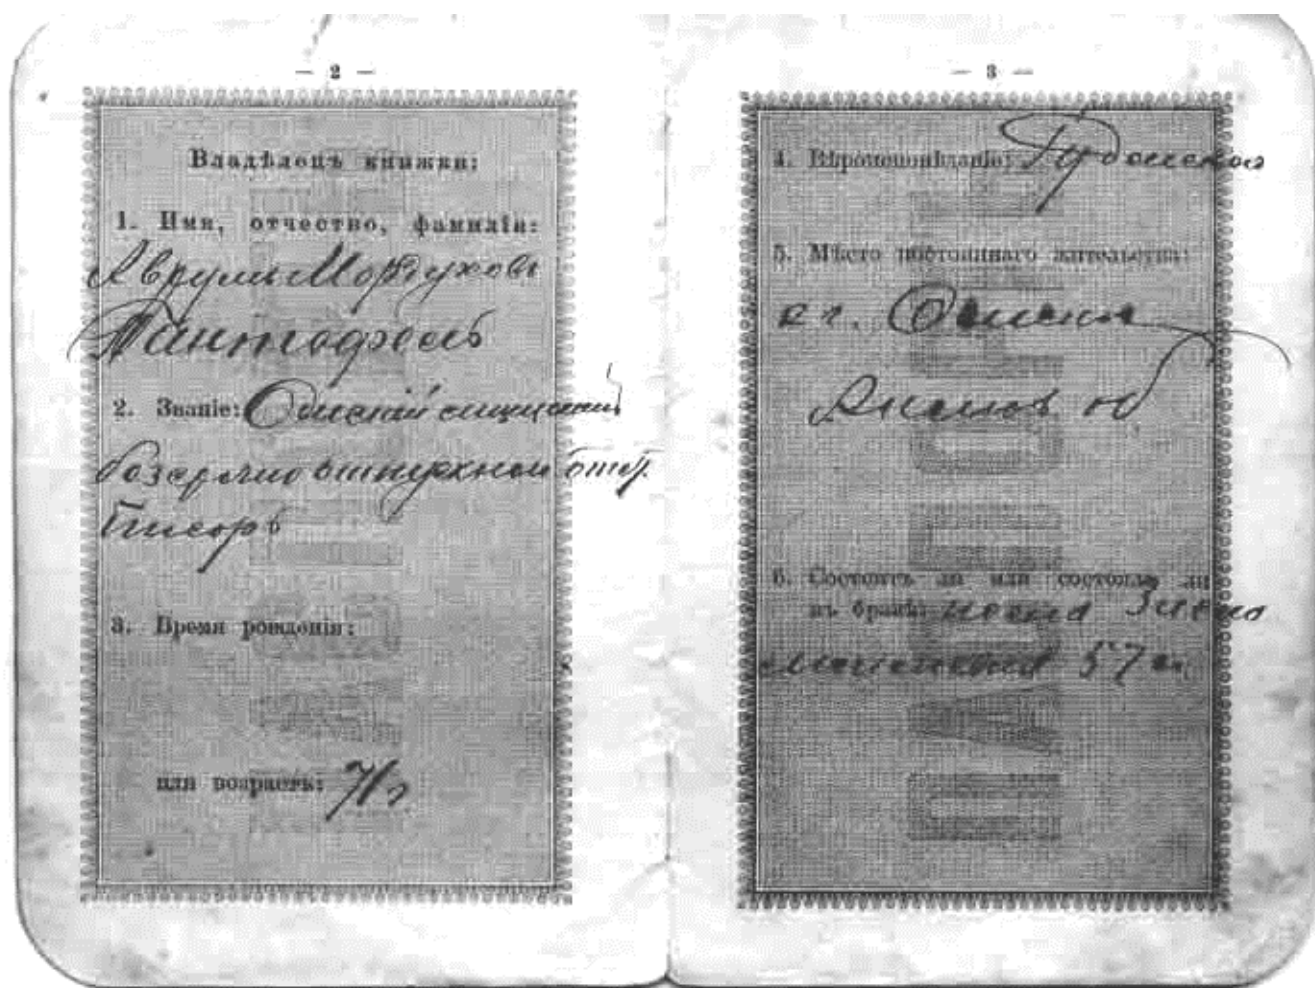 — 2 —
Владѣлецъ книжки:
1. Имя, отчество, фамилія:
Аврумъ Мордуховъ
Пантофель
2. Званіе: Омскій
безсрочно отпускной
Писарь
3. Время рожденія:
или возрастъ: 71 г
— 3 —
4. Вѣроисповѣданіе: Іудейская
5. Мѣсто постояннаго жительства:
въ г. Омскѣ
Акмол об
6. Состоитъ ли или состоялъ ли
въ бракѣ: жена
57 л
ПАСПОРТНАЯ